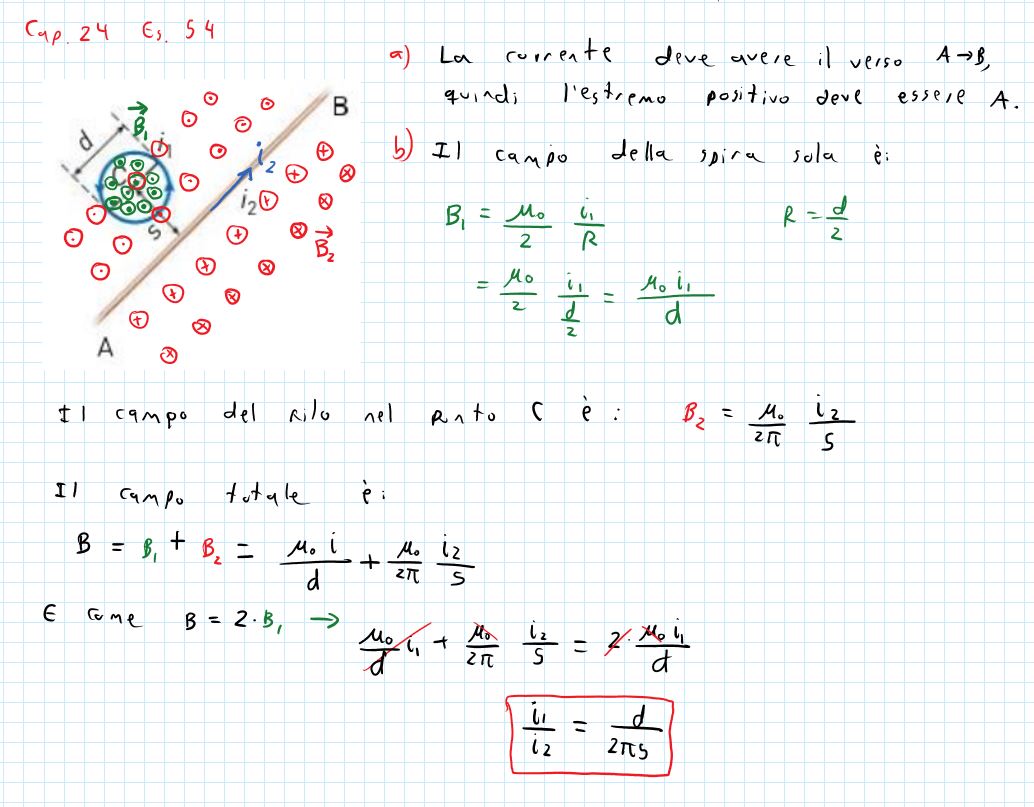 Cap. 24 Es. 54
a) La corrente deve avere il verso A→B,
quindi l'estremo positivo deve essere A.
b) Il campo della spira sola è:
B₁ = μ₀/2 i₁/R
R = d/2
= μ₀/2 i₁/(d/2) = μ₀ i₁/d
B
B₁
d
i₁
i₂
C
i₂
s
B₂
A
Il campo del filo nel punto C è: B₂ = μ₀/2π i₂/s
Il campo totale è:
B = B₁ + B₂ = μ₀ i/d + μ₀/2π i₂/s
E come B = 2·B₁ → μ₀/d i₁ + μ₀/2π i₂/s = 2·μ₀ i₁/d
i₁/i₂ = d/2πs